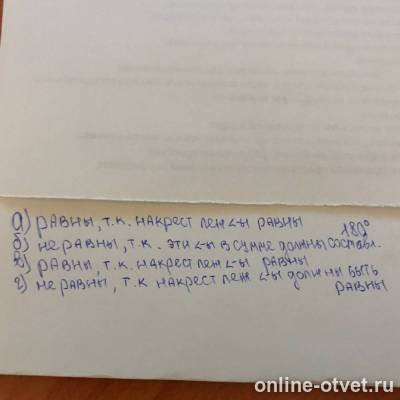 а) равны, т.к. накрест леж ∠-ы равны
180°
б) не равны, т.к. эти ∠-ы в сумме должны составл.
в) равны, т.к. накрест леж ∠-ы равны
г) не равны, т.к накрест леж ∠-ы должны быть
равны
online-otvet.ru